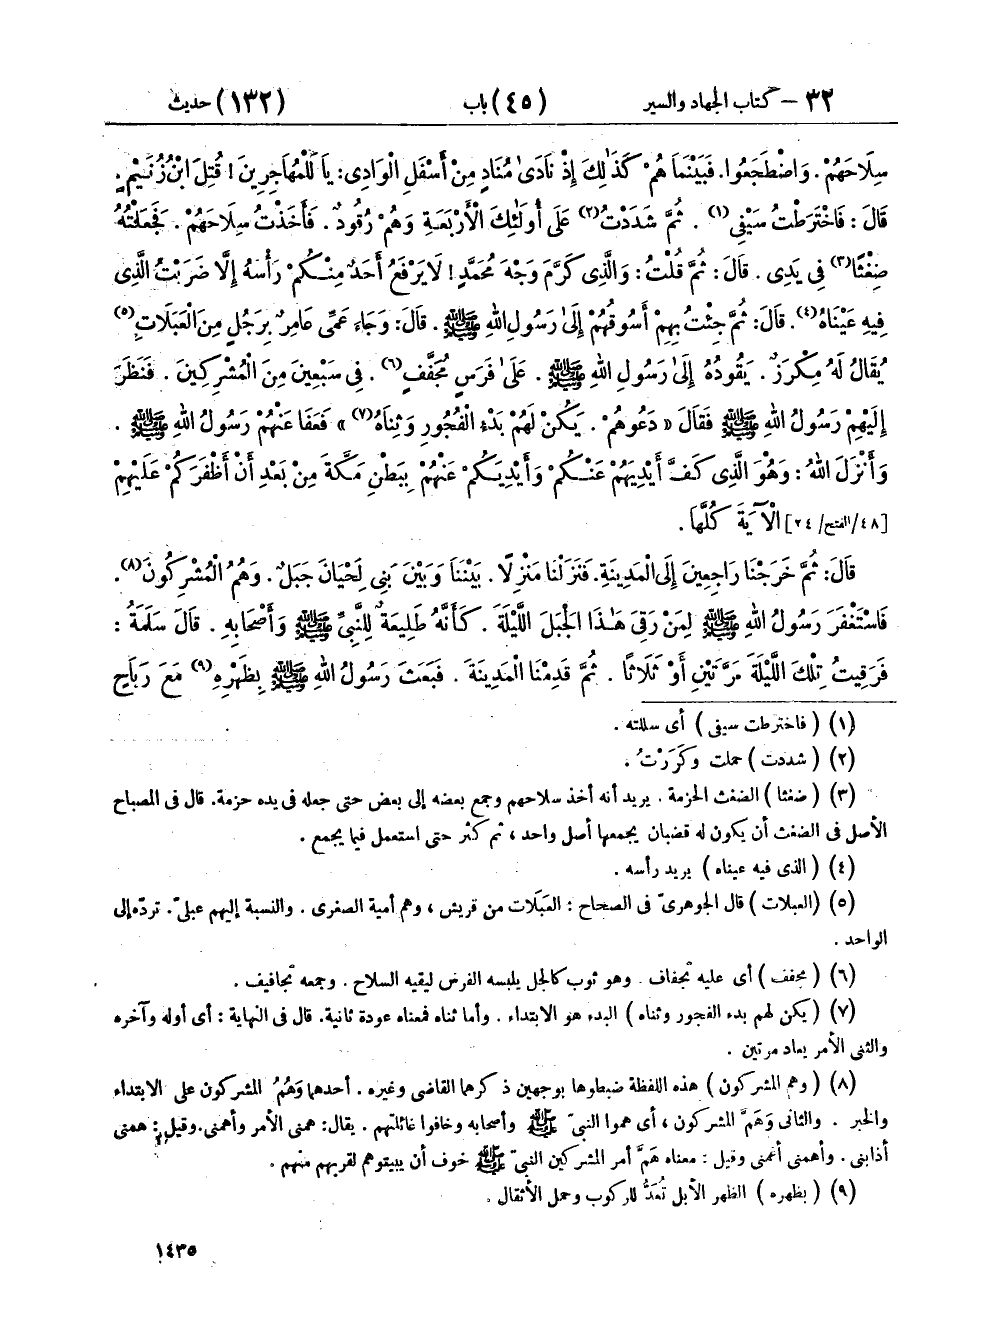 ٣٢ – كتاب الجهاد والسير (٤٥) باب (١٣٢) حديث
سِلَاحَهُمْ . وَاضْطَجَعُوا. فَبَيْنَمَا هُمْ كَذَٰلِكَ إِذْ نَادَىٰ مُنَادٍ مِنْ أَسْفَلِ الْوَادِى: يَا لَلْمُهَاجِرِينَ ! قُتِلَ ابْنُ زُنَيْمٍ .
قَالَ : فَاخْتَرَطْتُ سَيْفِى(١) . ثُمَّ شَدَدْتُ(٢) عَلَىٰ أُولَئِكَ الْأَرْبَعَةِ وَهُمْ رُقُودٌ . فَأَخَذْتُ سِلَاحَهُمْ . فَجَعَلْتُهُ
ضِغْثًا(٣) فِى يَدِى . قَالَ: ثُمَّ قُلْتُ: وَالَّذِى كَرَّمَ وَجْهَ مُحَمَّدٍ! لَا يَرْفَعُ أَحَدٌ مِنْكُمْ رَأْسَهُ إِلَّا ضَرَبْتُ الَّذِى
فِيهِ عَيْنَاهُ(٤). قَالَ: ثُمَّ جِئْتُ بِهِمْ أَسُوقُهُمْ إِلَىٰ رَسُولِ اللهِ ﷺ . قَالَ: وَجَاءَ عَمِّى عَامِرٌ بِرَجُلٍ مِنَ الْعَبَلَاتِ(٥)
يُقَالُ لَهُ مِكْرَزٌ . يَقُودُهُ إِلَىٰ رَسُولِ اللهِ ﷺ . عَلَىٰ فَرَسٍ مُجَفَّفٍ(٦) . فِى سَبْعِينَ مِنَ الْمُشْرِكِينَ . فَنَظَرَ
إِلَيْهِمْ رَسُولُ اللهِ ﷺ فَقَالَ « دَعُوهُمْ . يَكُنْ لَهُمْ بَدْءُ الْفُجُورِ وَثِنَاهُ(٧) » فَعَفَا عَنْهُمْ رَسُولُ اللهِ ﷺ .
وَأَنْزَلَ اللهُ : وَهُوَ الَّذِى كَفَّ أَيْدِيَهُمْ عَنْكُمْ وَأَيْدِيَكُمْ عَنْهُمْ بِبَطْنِ مَكَّةَ مِنْ بَعْدِ أَنْ أَظْفَرَكُمْ عَلَيْهِمْ
[٤٨/الفتح/٢٤] الْآيَةَ كُلَّهَا .
قَالَ: ثُمَّ خَرَجْنَا رَاجِعِينَ إِلَى الْمَدِينَةِ. فَنَزَلْنَا مَنْزِلًا . بَيْنَنَا وَبَيْنَ بَنِى لِحْيَانَ جَبَلٌ . وَهُمُ الْمُشْرِكُونَ(٨).
فَاسْتَغْفَرَ رَسُولُ اللهِ ﷺ لِمَنْ رَقِىَ هَٰذَا الْجَبَلَ اللَّيْلَةَ . كَأَنَّهُ طَلِيعَةٌ لِلنَّبِىِّ ﷺ وَأَصْحَابِهِ . قَالَ سَلَمَةُ :
فَرَقِيتُ تِلْكَ اللَّيْلَةَ مَرَّتَيْنِ أَوْ ثَلَاثًا . ثُمَّ قَدِمْنَا الْمَدِينَةَ . فَبَعَثَ رَسُولُ اللهِ ﷺ بِظَهْرِهِ(٩) مَعَ رَبَاحٍ
(١) ( فاخترطت سيفى ) أى سللته .
(٢) ( شددت ) حملت وكَرَرْتُ .
(٣) ( ضغثا ) الضغث الحزمة . يريد أنه أخذ سلاحهم وجمع بعضه إلى بعض حتى جعله فى يده حزمة. قال فى المصباح
الأصل فى الضغث أن يكون له قضبان يجمعها أصل واحد ، ثم كثر حتى استعمل فيما يجمع .
(٤) ( الذى فيه عيناه ) يريد رأسه .
(٥) (العبلات ) قال الجوهرىّ فى الصحاح : العَبَلَات من قريش ، وهم أمية الصغرى . والنسبة إليهم عبلىّ. تردّه إلى
الواحد .
(٦) ( مجفف ) أى عليه تَجفاف . وهو ثوب كالجل يلبسه الفرس ليقيه السلاح . وجمعه تَجافيف .
(٧) ( يكن لهم بدء الفجور وثناه ) البدء هو الابتداء . وأما ثناه فمعناه عودة ثانية. قال فى النهاية : أى أوله وآخره
والثنى الأمر يعاد مرتين .
(٨) ( وهم المشركون ) هذه اللفظة ضبطوها بوجهين ذكرهما القاضى وغيره . أحدهما وَهُمُ المشركون على الابتداء
والخبر . والثانى وَهَمَّ المشركون ، أى هموا النبىّ ﷺ وأصحابه وخافوا غائلتهم . يقال: همنى الأمر وأهمنى.وقيل: همنى
أذابنى . وأهمنى أغمنى وقيل : معناه هَمَّ أمر المشركين النبىّ ﷺ خوف أن يبيتوهم لقربهم منهم .
(٩) ( بظهره ) الظهر الأبل تُعَدُّ للركوب وحمل الأثقال .
١٤٣٥